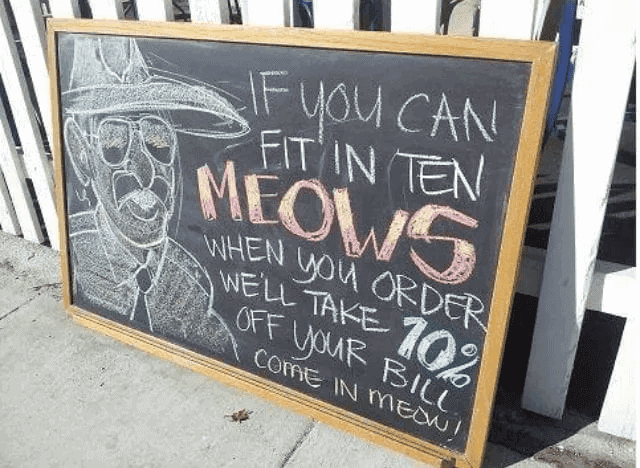 IF YOU CAN
FIT IN TEN
MEOWS
WHEN YOU ORDER
WE'LL TAKE 10%
OFF YOUR BILL
COME IN MEOW!